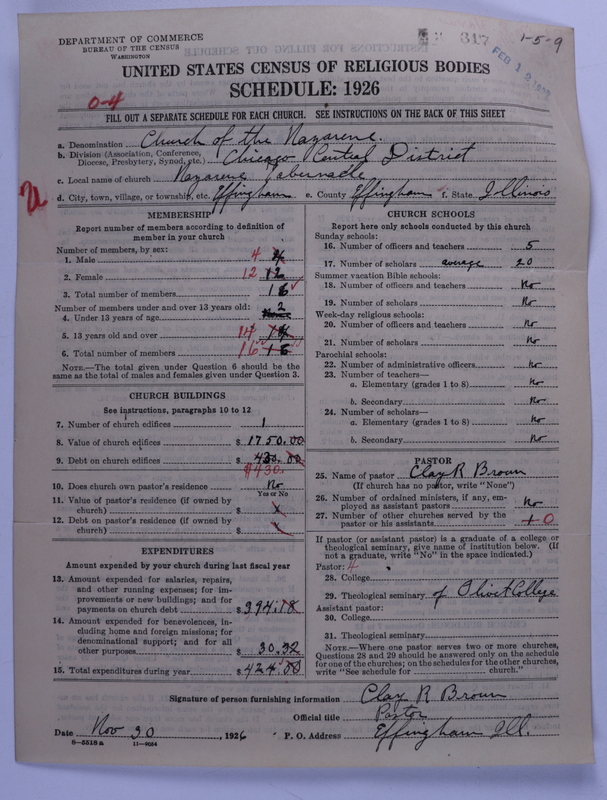 DEPARTMENT OF COMMERCE
BUREAU OF THE CENSUS
WASHINGTON
317
FEB 1
1-5-9
UNITED STATES CENSUS OF RELIGIOUS BODIES
SCHEDULE: 1926
0-4
FILL OUT A SEPARATE SCHEDULE FOR EACH CHURCH. SEE INSTRUCTIONS ON THE BACK OF THIS SHEET
a. Denomination Church of the Nazarene.
b. Division (Association, Conference, Diocese, Presbytery, Synod, etc.) Chicago Central District
c. Local name of church Nazarene Tabernacle
d. City, town, village, or township, etc. Effingham e. County Effingham f. State Illinois
MEMBERSHIP
Report number of members according to definition of
member in your church
Number of members, by sex:
1. Male 4 4
2. Female 12 12
3. Total number of members 16
Number of members under and over 13 years old:
4. Under 13 years of age 2
5. 13 years old and over 14 14
6. Total number of members 16 16
NOTE.—The total given under Question 6 should be
same as the total of males and females given under Question 3.
CHURCH BUILDINGS
See instructions, paragraphs 10 to 12
7. Number of church edifices 1
8. Value of church edifices $ 1750.00
9. Debt on church edifices $ 430.00
$430.
10. Does church own pastor's residence? No
Yes or No
11. Value of pastor's residence (if owned by
church) $ x
12. Debt on pastor's residence (if owned by
church) $
EXPENDITURES
Amount expended by your church during last fiscal year
13. Amount expended for salaries, repairs,
and other running expenses; for im-
provements or new buildings; and for
payments on church debt $ 394.18
14. Amount expended for benevolences, in-
cluding home and foreign missions; for
denominational support; and for all
other purposes 30.32
15. Total expenditures during year $ 424.00
CHURCH SCHOOLS
Report here only schools conducted by this church
Sunday schools:
16. Number of officers and teachers 5
17. Number of scholars average 20
Summer vacation Bible schools:
18. Number of officers and teachers No
19. Number of scholars No
Week-day religious schools:
20. Number of officers and teachers No
21. Number of scholars No
Parochial schools:
22. Number of administrative officers No
23. Number of teachers—
a. Elementary (grades 1 to 8) No
b. Secondary No
24. Number of scholars—
a. Elementary (grades 1 to 8) No
b. Secondary No
PASTOR
25. Name of pastor Clay R Brown
(If church has no pastor, write "None")
26. Number of ordained ministers, if any, em-
ployed as assistant pastors No
27. Number of other churches served by the
pastor or his assistants 0
If pastor (or assistant pastor) is a graduate of a college or
theological seminary, give name of institution below. (If
not a graduate, write "No" in the space indicated.)
Pastor: 4
28. College
29. Theological seminary of Olivet College
Assistant pastor:
30. College
31. Theological seminary
NOTE.—Where one pastor serves two or more churches,
Questions 28 and 29 should be answered only on the schedule
for one of the churches; on the schedules for the other churches,
write "See schedule for church."
Signature of person furnishing information Clay R Brown
Official title Pastor
Date Nov 30, 1926 P. O. Address Effingham Ill.
8-5518a 11-9034